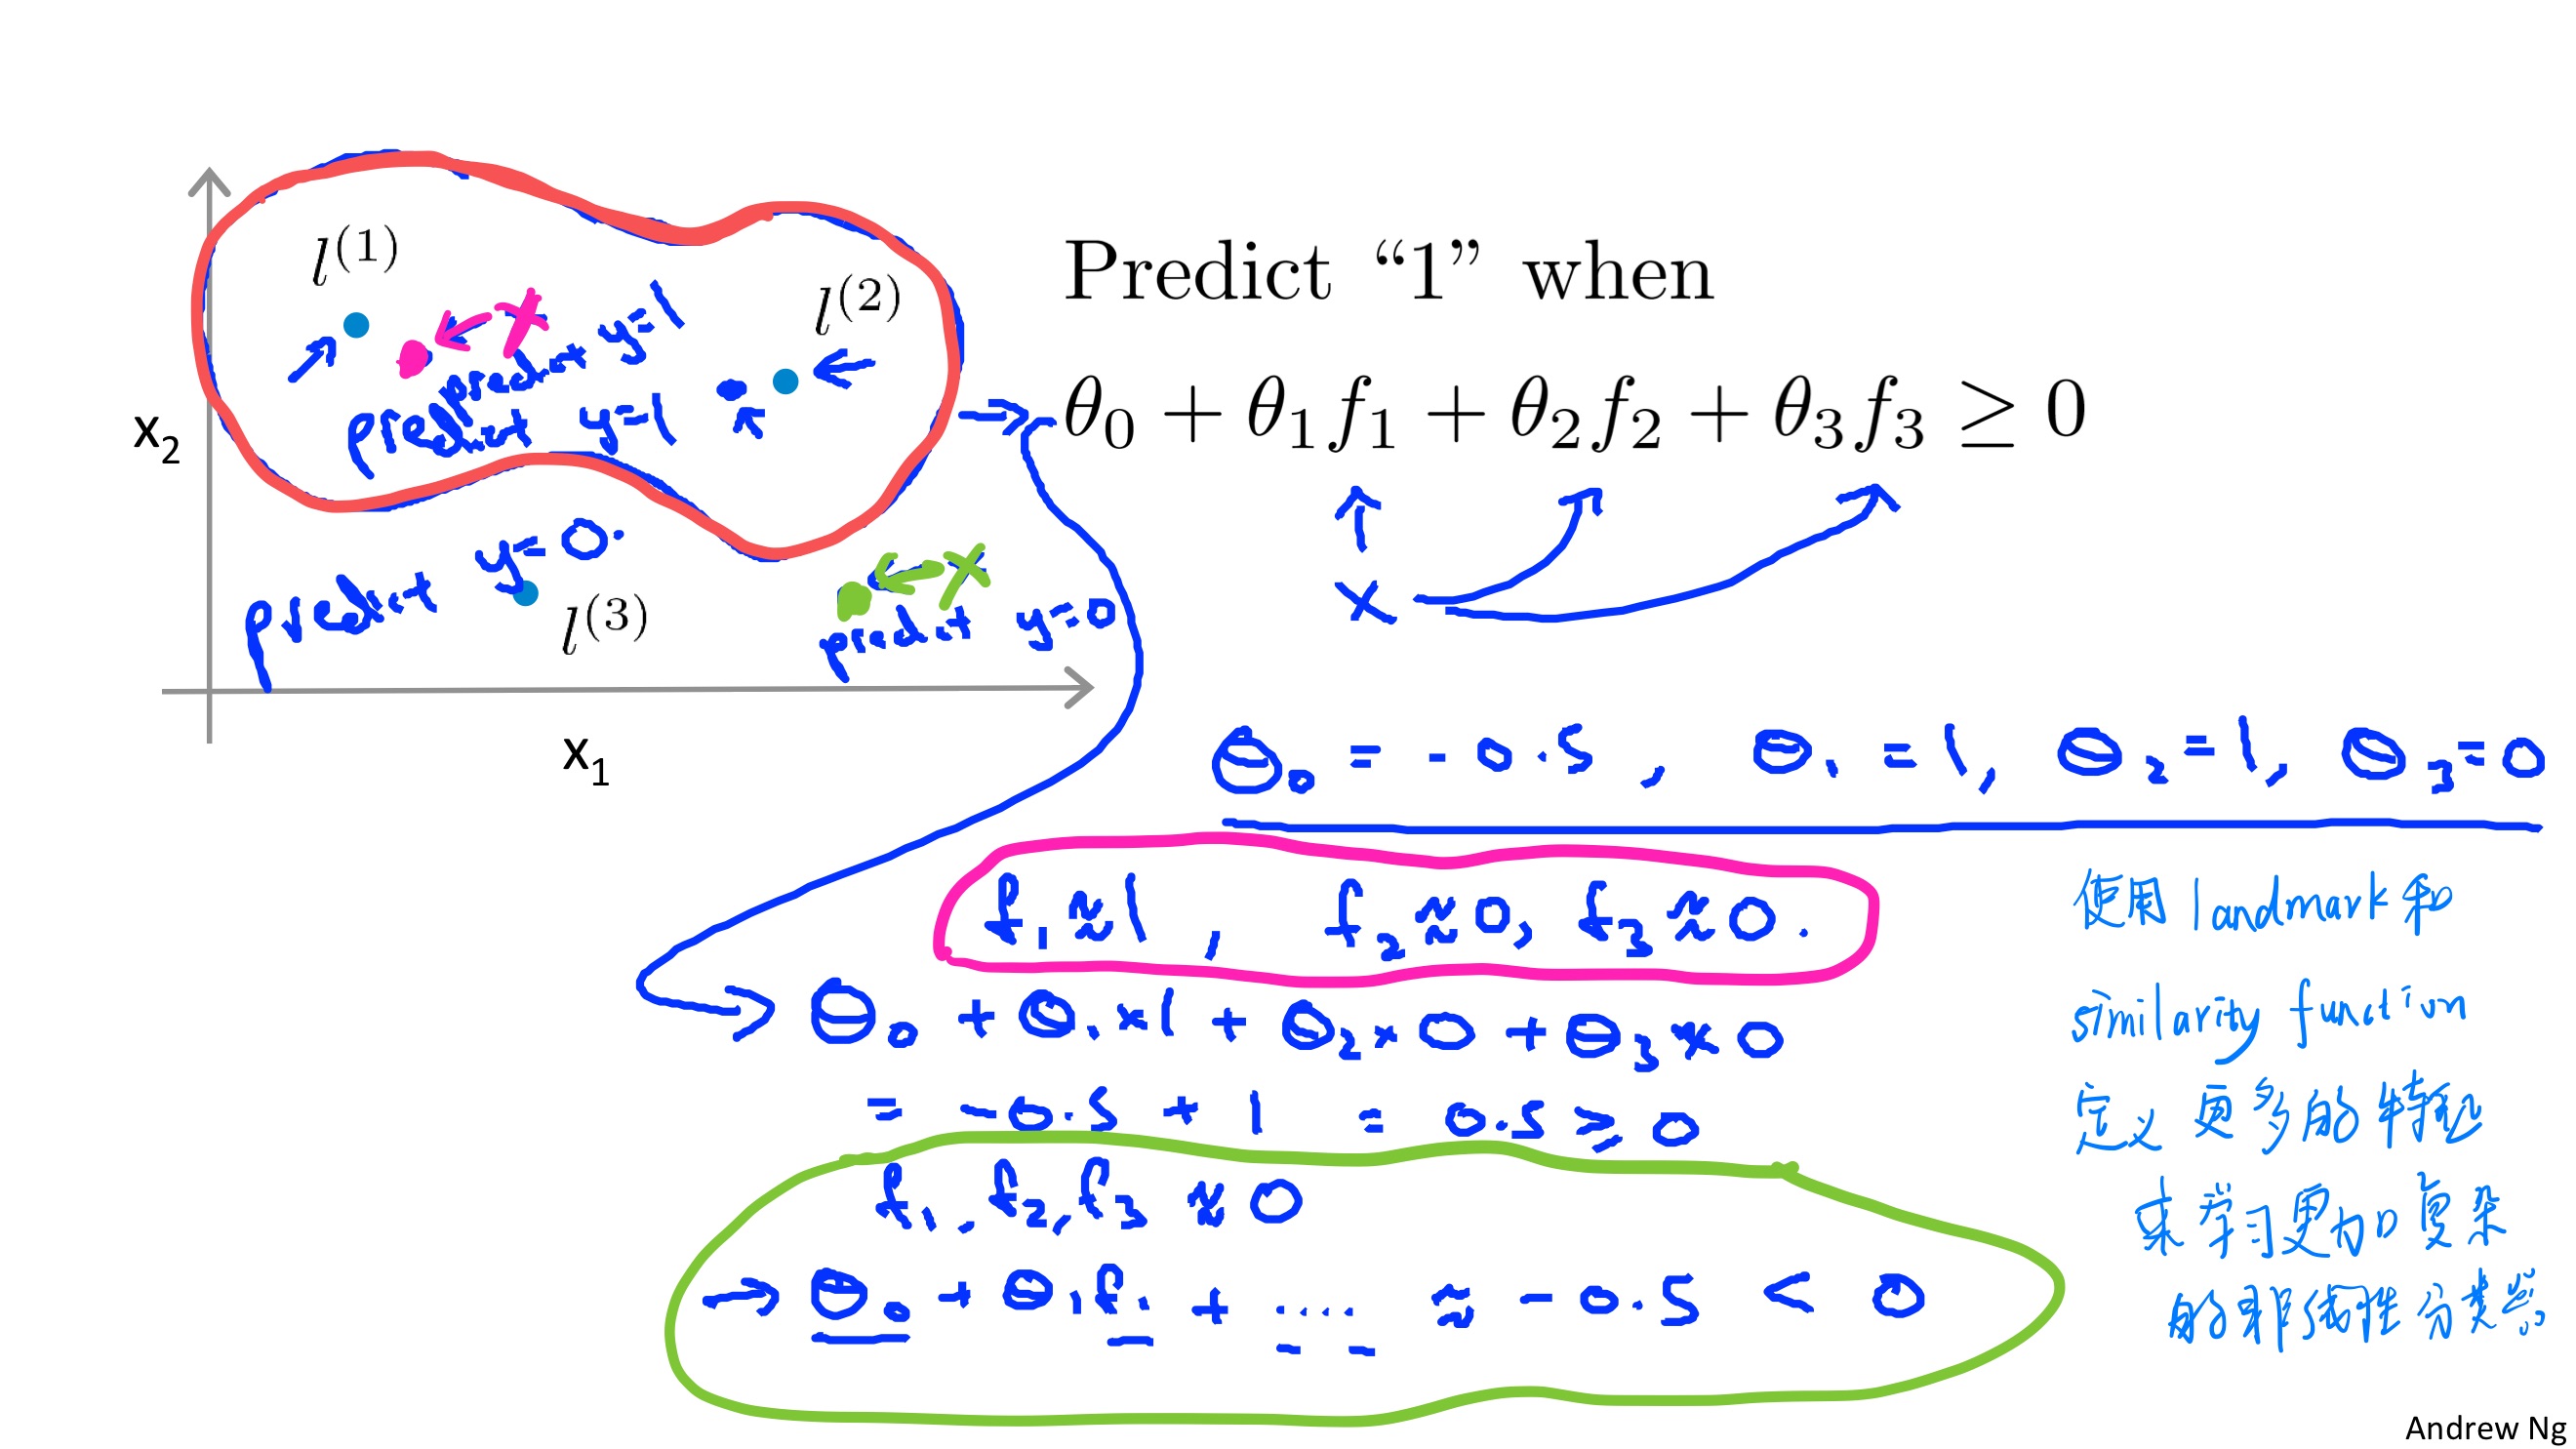 l^{(1)}
l^{(2)}
x
predict y=1
predict y=1
x_2
predict y=0.
l^{(3)}
x
predict y=0
x_1
Predict “1” when
θ_0 + θ_1 f_1 + θ_2 f_2 + θ_3 f_3 ≥ 0
x
θ_0 = -0.5, θ_1 = 1, θ_2 = 1, θ_3 = 0
f_1 ≈ 1, f_2 ≈ 0, f_3 ≈ 0.
→ θ_0 + θ_1 × 1 + θ_2 × 0 + θ_3 × 0
= -0.5 + 1 = 0.5 ≥ 0
f_1, f_2, f_3 ≈ 0
→ θ_0 + θ_1 f_1 + .... ≈ -0.5 < 0
使用 landmark 和
similarity function
定义更多的特征
来学习更加复杂
的非线性分类器
Andrew Ng